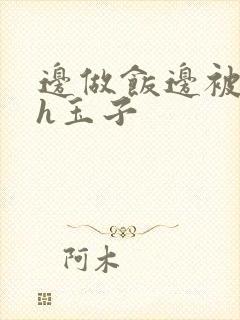 邊做飯邊被
h玉子
阿木